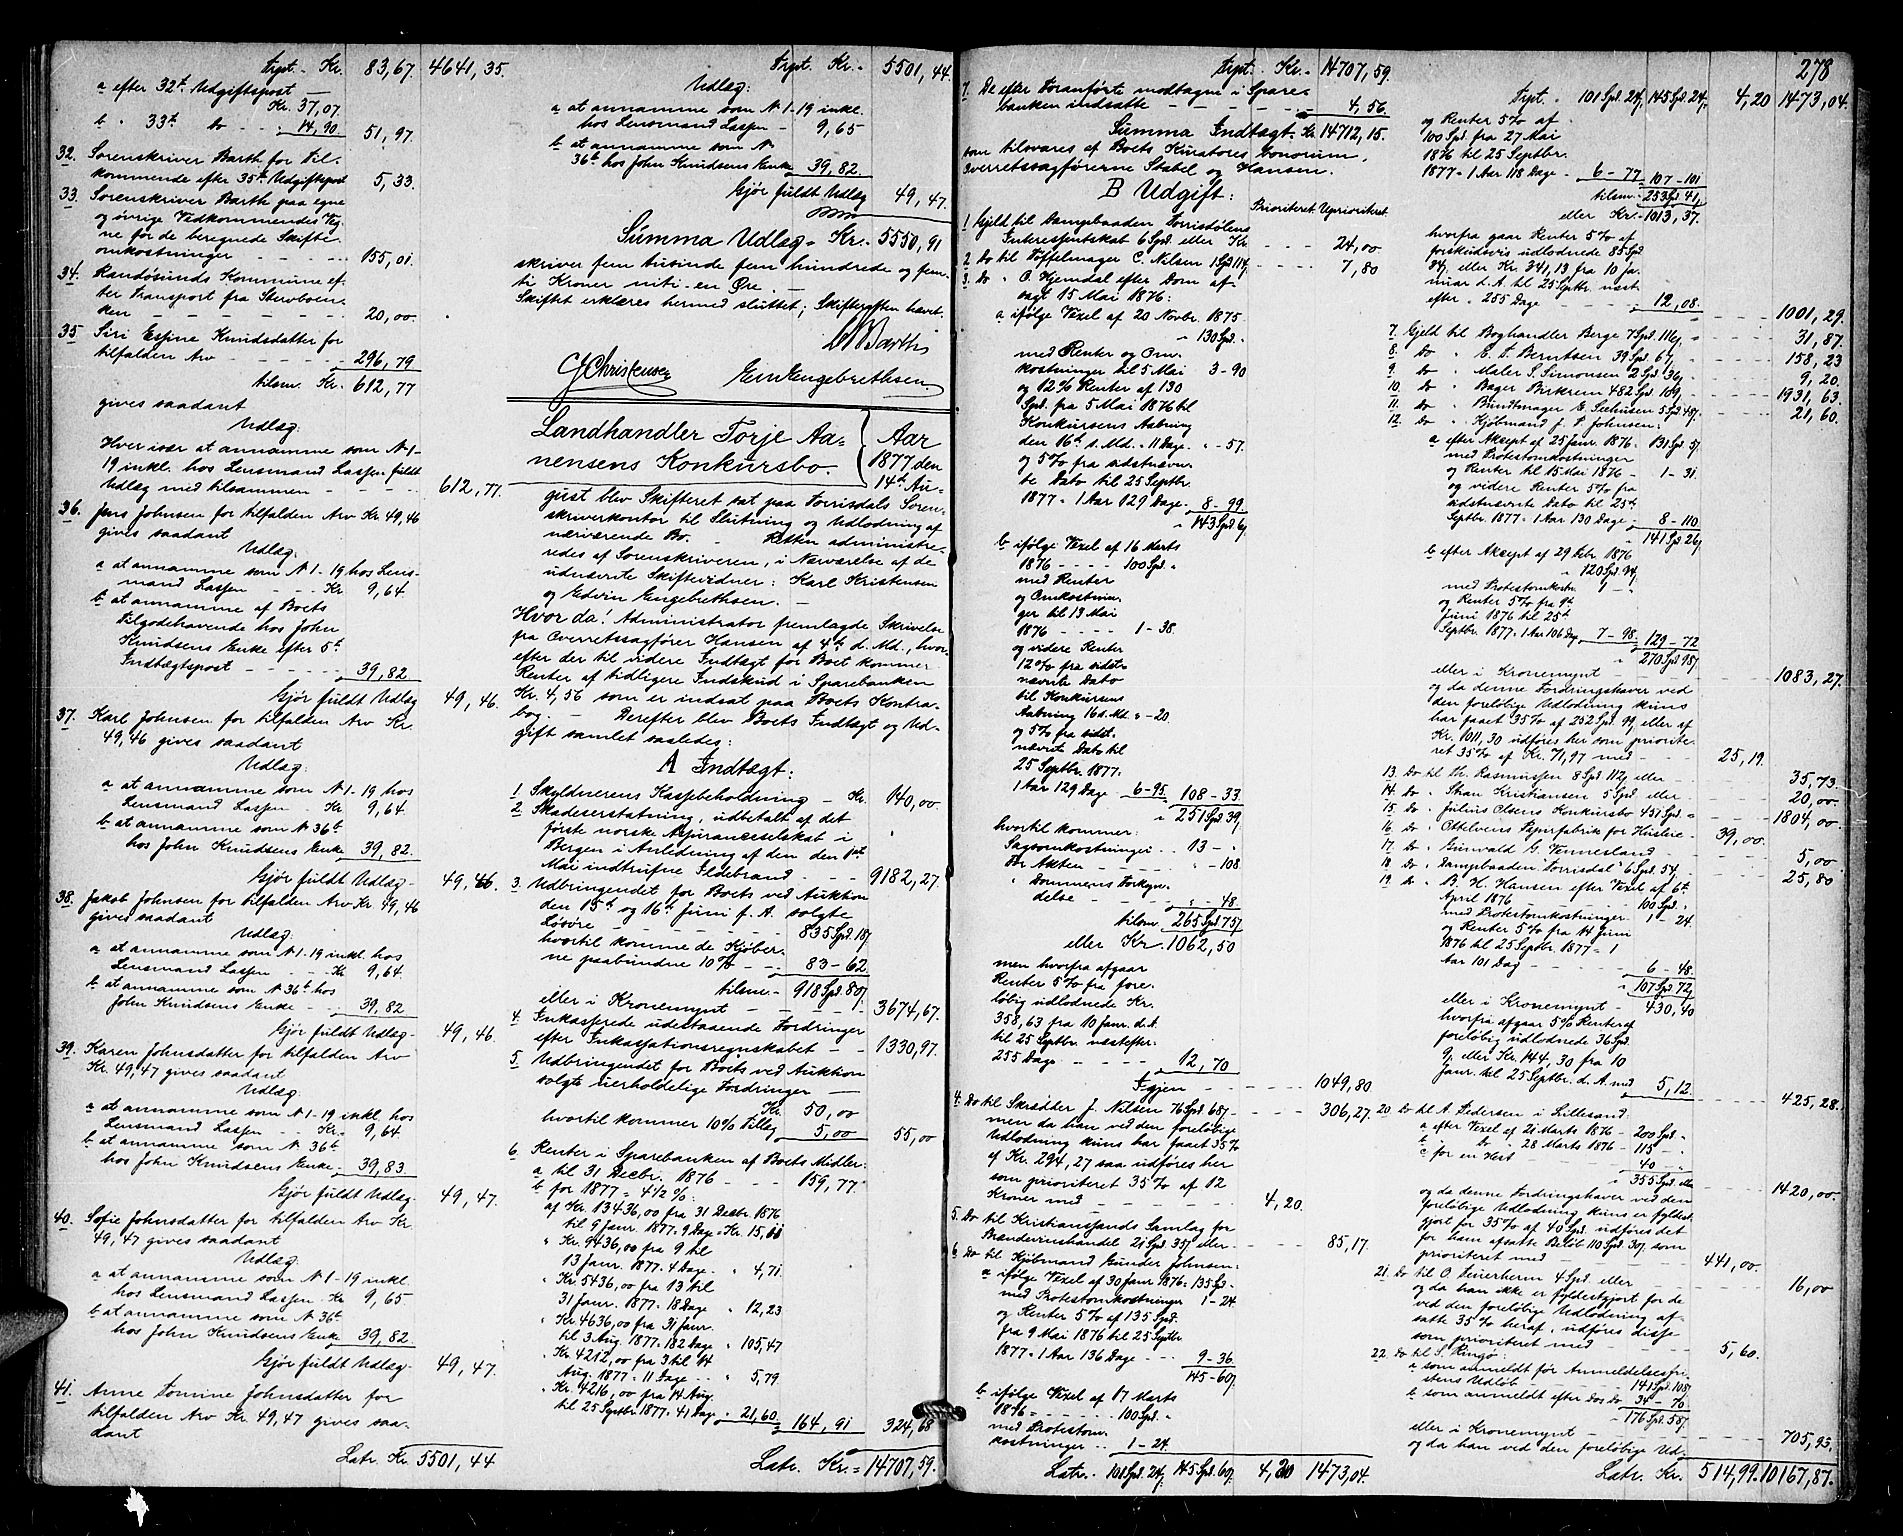 Trpt. Kr. 83,67. 4641,35.
a efter 32te Udgiftspost
Kr. 37,07.
b " 33te do - 14,90 51,97.
32. Sorenskriver Barth for til-
kommende efter 35te Udgiftspost 5,33.
33. Sorenskriver Barth paa egne
og øvrige Vedkommendes Veg-
ne for de beregnede Skifte-
omkostninger - - - 155,01.
34. Randøsunds Kommune ef-
ter Transport fra Stervboen-
ken - - - 20,00.
35. Siri Espine Knudsdatter for
tilfalden Arv - - - 296,79
tilsm. Kr. 612,77
gives saadant
Udlæg:
Hver især at annamme som N 1-
19 inkl. hos Lensmand Lassen fuldt
Udlæg med tilsammen - - - 612,77.
36. Jens Johnsen for tilfalden Arv Kr. 49,46
gives saadant
Udlæg:
a at annamme som N 1-19 hos Lens-
mand Lassen - - Kr 9,64.
b at annamme af Boets
Tilgodehavende hos John
Knudsens Enke efter 5te
Indtægtspost - - - 39,82
Gjør fuldt Udlæg 49,46.
37. Karl Johnsen for tilfalden Arv Kr.
49,46 gives saadant
Udlæg:
a at annamme som N 1-19 hos
Lensmand Lassen - Kr 9,64
b at annamme som N 36te
hos John Knudsens Enke 39,82.
Gjør fuldt Udlæg - 49,46.
38. Jakob Johnsen for tilfalden Arv Kr. 49,46
gives saadant
Udlæg:
a at annamme som N 1-19 inkl. hos
Lensmand Lassen - - Kr 9,64.
b at annamme som N 36te hos
John Knudsens Enke - - 39,82
Gjør fuldt Udlæg - 49,46.
39. Karen Johnsdatter for tilfalden Arv
Kr. 49,47 gives saadant
Udlæg:
a at annamme som N 1-19 inkl. hos
Lensmand Lassen - - Kr. 9,64.
b at annamme som N 36te
hos John Knudsens Enke - 39,83
Gjør fuldt Udlæg - 49,47.
40. Sofie Johnsdatter for tilfalden Arv Kr.
49,47 gives saadant
Udlæg:
a at annamme som N 1-19 inkl.
hos Lensmand Lassen - Kr 9,65
b at annamme som N 36te
hos John Knudsens Enke 39,82
Gjør fuldt Udlæg - 49,47.
41. Anne Tomine Johnsdatter for
tilfalden Arv Kr 49,47 gives saa-
dant
Latr. Kr 5501,44
Trpt. Kr. - 5501,44.
Udlæg:
a at annamme som N 1-19 inkl.
hos Lensmand Lassen - 9,65
b at annamme som N
36te hos John Knudsens Enke 39,82.
Gjør fuldt Udlæg 49,47.
Summa Udlæg - Kr. - 5550,91
skriver fem tusinde fem hundrede og fem-
ti Kroner niti-en Øre. -
Skiftet erklæres hermed sluttet; Skifteretten hævet.
Barth
C Christensen Edv Engebrethsen.
Landhandler Torje Aa-
nensens Konkursbo.
Aar
1877 den
14de Au-
gust blev Skifteret sat paa Torrisdals Soren-
skriverkontor til Slutning og Udlodning af
nærværende Bo. - Retten administre-
redes af Sorenskriveren, i Nærværelse af de
udnævnte Skiftevidner: Karl Kristensen
og Edvin Engebrethsen. -
Hvorda! Administrator fremlagde Skrivelse
fra Overretssagfører Hansen af 4de d. Md., hvor-
efter der til videre Indtægt for Boet kommer
Renter af tidligere Indskud i Sparebanken
Kr. 4,56 som er indsat paa Boets Kontra-
bog. - Derefter blev Boets Indtægt og Ud-
gift samlet saaledes:
A Indtægt:
1. Skyldnerens Kassebeholdning - Kr. 140,00.
2 Skadeserstatning, udbetalt af det
første norske Assuranceselskab i
Bergen i Anledning af den den 1ste
Mai indtrufne Ildebrand - - - 9182,27.
3. Udbringendet for Boets ved Auktion
den 15de og 16de Juni f. A. solgte
Løsøre - - - 835 Spd. 18ß
hvortil komme de Kjøber-
ne paabundne 10% - - 83-62
tilsm. - 918 Spd. 80ß
eller i Kronemynt - - - 3674,67.
4. Inkasserede udestaaende Fordringer
efter Inkassationsregnskabet - - 1330,97.
5. Udbringendet for Boets ved Auktion
solgte uerholdelige Fordringer -
Kr. 50,00
hvortil kommer 10% Tillæg 5,00 55,00
6. Renter i Sparebanken af Boets Midler:
a til 31 Decbr. 1876 - - 159,77.
b for 1877 = 4 1/2 %:
af Kr. 13436,00 fra 31 Decbr. 1876
til 9 Janr. 1877. 9 Dage - Kr. 15,11
" Kr. 9436,00 fra 9 til
13 Janr. 1877. 4 Dage. " 4,71.
" Kr. 5436,00 fra 13 til
31 Janr. 1877. 18 Dage " 12,23
" Kr. 4636,00 fra 31 Janr.
til 3 Aug. 1877. 182 Dage " 105,47
" Kr. 4212,00 fra 3 til 14
Aug. 1877. 11 Dage - - " 5,79
" Kr. 4216,00 fra 14 Aug.
til 25 Septbr. 1877. 41 Dage " 21,60 164,91 324,68
Latr. Kr. = 14707,59.
Trpt. Kr. - 14707,59.
7. De efter Foranførte modtagne i Spare-
banken indsatte - - - 4,56.
Summa Indtægt. Kr 14712,15.
som tilsvares af Boets Kuratores bonorum,
Overretssagførerne Stabel og Hansen.
B Udgift:
Prioriteret. Uprioriteret.
1 Gjeld til Dampbaaden Torrisdølens
Interessentskab 6 Spd. eller Kr - - - 24,00
2 Do til Tøffelmager C. Nilsen 1 Spd 114ß - - - 7,80
3. Do " O. Hjemdal efter Dom af-
sagt 15 Mai 1876:
a ifølge Vexel af 20 Novbr. 1875.
" 130 Spd. "
med Renter og Om-
kostninger til 5 Mai 3-90
og 12% Renter af 130
Spd. fra 5 Mai 1876 til
Konkursens Aabning
den 16de s. Md. - 11 Dage. " -57.
og 5% fra sidstnævn-
te Dato til 25 Septbr.
1877 = 1 Aar 129 Dage. 8-99.
" 143 Spd. 6ß
b ifølge Vexel af 16 Marts
1876 - - - - 100 Spd. "
med Renter
og Omkostnin-
ger til 13 Mai
1876 - - - - 1-38.
og videre Renter
12% fra sidst-
nævnte Dato
til Konkursens
Aabning 16 d. Md. " -20.
og 5% fra sidst-
nævnte Dato til
25 Septbr. 1877.
1 Aar 129 Dage 6-95. 108-33.
" 251 Spd. 39ß
hvortil kommer:
Sagsomkostninger - 13- "
For Akten - - - " -108.
" Dommens Forkyn-
delse - - - - " -48.
tilsm. 265 Spd. 75ß
eller Kr. 1062,50
men hvorfra afgaar
Renter 5% fra fore-
løbig udlodnede Kr.
358,63 fra 10 Janr. d. A.
til 25 Septbr. næstefter:
255 Dage - - - - 12,70
Igjen - - - 1049,80
4. Do til Skrædder J. Nilsen 76 Spd. 68ß - - - 306,27.
men da han ved den foreløbige
Udlodning kuns har faaet 35%
af Kr. 294,27 saa udføres her
som prioriteret 35% af 12
Kroner med - - - 4,20.
5. Do til Kristianssands Samlag for
Brændevinshandel 21 Spd. 35ß eller - - - 85,17.
6. Do til Kjøbmand Gunder Johnsen:
a ifølge Vexel af 30 Janr 1876. 135 Spd. -
med Protestomkostninger 1-24.
og Renter 5% af 135 Spd.
fra 9 Mai 1876 til 25 Septbr
1877 = 1 Aar 136 Dage - - 9-36
145-60ß
b ifølge Vexel af 17 Marts
1876 = - - - 100 Spd. "
med Protestom-
kostninger - - 1-24.
Latr. 101 Spd. 24ß 145 Spd. 60ß 4,20 1473,04.
278
Trpt. 101 Spd. 24ß 145 Spd. 24ß 4,20 1473,04.
og Renter 5% af
100 Spd. fra 27 Mai
1876 til 25 Septbr.
1877 = 1 Aar 118 Dage - 6-77. 107-101
tilsm. 253 Spd 41ß
eller Kr. - 1013,37.
hvorfra gaar Renter 5% af
forskudsvis udlodnede 85 Spd.
34ß eller Kr. 341,13 fra 10 Ja-
nuar d. A. til 25 Septbr. næst-
efter = 255 Dage - - - 12,08. - - - 1001,29.
7. Gjeld til Boghandler Berge 7 Spd. 116ß - - - 31,87.
8. Do " E. T. Berntsen 39 Spd. 67ß - - - 158,23
9. Do " Maler S. Simonsen 2 Spd. 36ß - - - 9,20.
10. Do " Bager Birkrem 482 Spd. 109ß - - - 1931,63
11. Do " Bundtmager E. Seehusen 5 Spd 48ß - - - 21,60.
12. Do " Kjøbmand J. P. Johnsen:
a efter Aksept af 25 Janr. 1876. 131 Spd. 5ß
med Protestomkostninger
og Renter til 15 Mai 1876 - 1-31.
og videre Renter 5% fra
sidstnævnte Dato til 25de
Septbr. 1877 = 1 Aar 130 Dage - 8-110
" 141 Spd 26ß
b efter Aksept af 29 Febr. 1876
" 120 Spd. 94ß
med Protestomkostn. 1- "
og Renter 5% fra 9de
Juni 1876 til 25de
Septbr. 1877. 1 Aar 106 Dag 7-98. 129-72
" 270 Spd. 98ß
eller i Kronemynt - - - 1083,27.
og da denne Fordringshaver ved
den foreløbige Udlodning kuns
har faaet 35% af 252 Spd. 99ß eller af
Kr. 1011,30 udføres her som priorite-
ret 35% af Kr. 71,97 med - - - 25,19.
13. Do til Th. Rasmussen 8 Spd 112ß eller - - - 35,73.
14. Do " Stian Kristiansen 5 Spd. eller - - - 20,00.
15. Do " Julius Olsens Konkursbo 451 Spd. " - - 1804,00.
16. Do " Ottelvens Papirfabrik for Husleie - 39,00.
17. Do " Gunvald G. Vennesland - - - 5,00
18. Do " Dampbaaden "Torrisdal" 6 Spd. 54ß - - - 25,80
19. Do " B. H. Hansen efter Vexel af 6te
April 1876 - - - 100 Spd. "
med Protestomkostninger - 1-24.
og Renter 5% fra 14 Juni
1876 til 25 Septbr. 1877 = 1
Aar 101 Dag - - - 6-48.
" 107 Spd. 72ß
eller i Kronemynt - 430,40
hvorfra afgaar 5% Renter af
foreløbig udlodnede 36 Spd.
9ß eller Kr. 144,30 fra 10
Janr. til 25 Septbr. d. A. med 5,12. - - - 425,28.
20. Do til A. Pedersen i Lillesand:
a efter Vexel af 21 Marts 1876 - 200 Spd. "
b " do " 28 Marts 1876 - 115- "
c for en Hest - - - 40- "
" 355 Spd. eller - 1420,00.
og da denne Fordringshaver ved den
foreløbige Udlodning kuns er fyldest-
gjort for 35% af 40 Spd. udføres det
for ham afsatte Beløb 110 Spd. 30ß som
prioriteret med - - - 441,00.
21. Do til O. Feuerherm 4 Spd. eller - - - 16,00
og da han ikke er fyldestgjort for de
ved den foreløbige Udlodning af-
satte 35% heraf, udføres disse
som prioriteret med - - - 5,60.
22. Do til S. Ringø:
a som anmeldt før Anmeldelsesfri-
stens Udløb - - - 141 Spd. 108ß
b som anmeldt efter Do Do 34-70.
" 176 Spd. 58ß
eller i Kronemynt - - - 705,95.
og da han ved den foreløbige Ud-
Latr. Kr. 514,99. 10167,87.